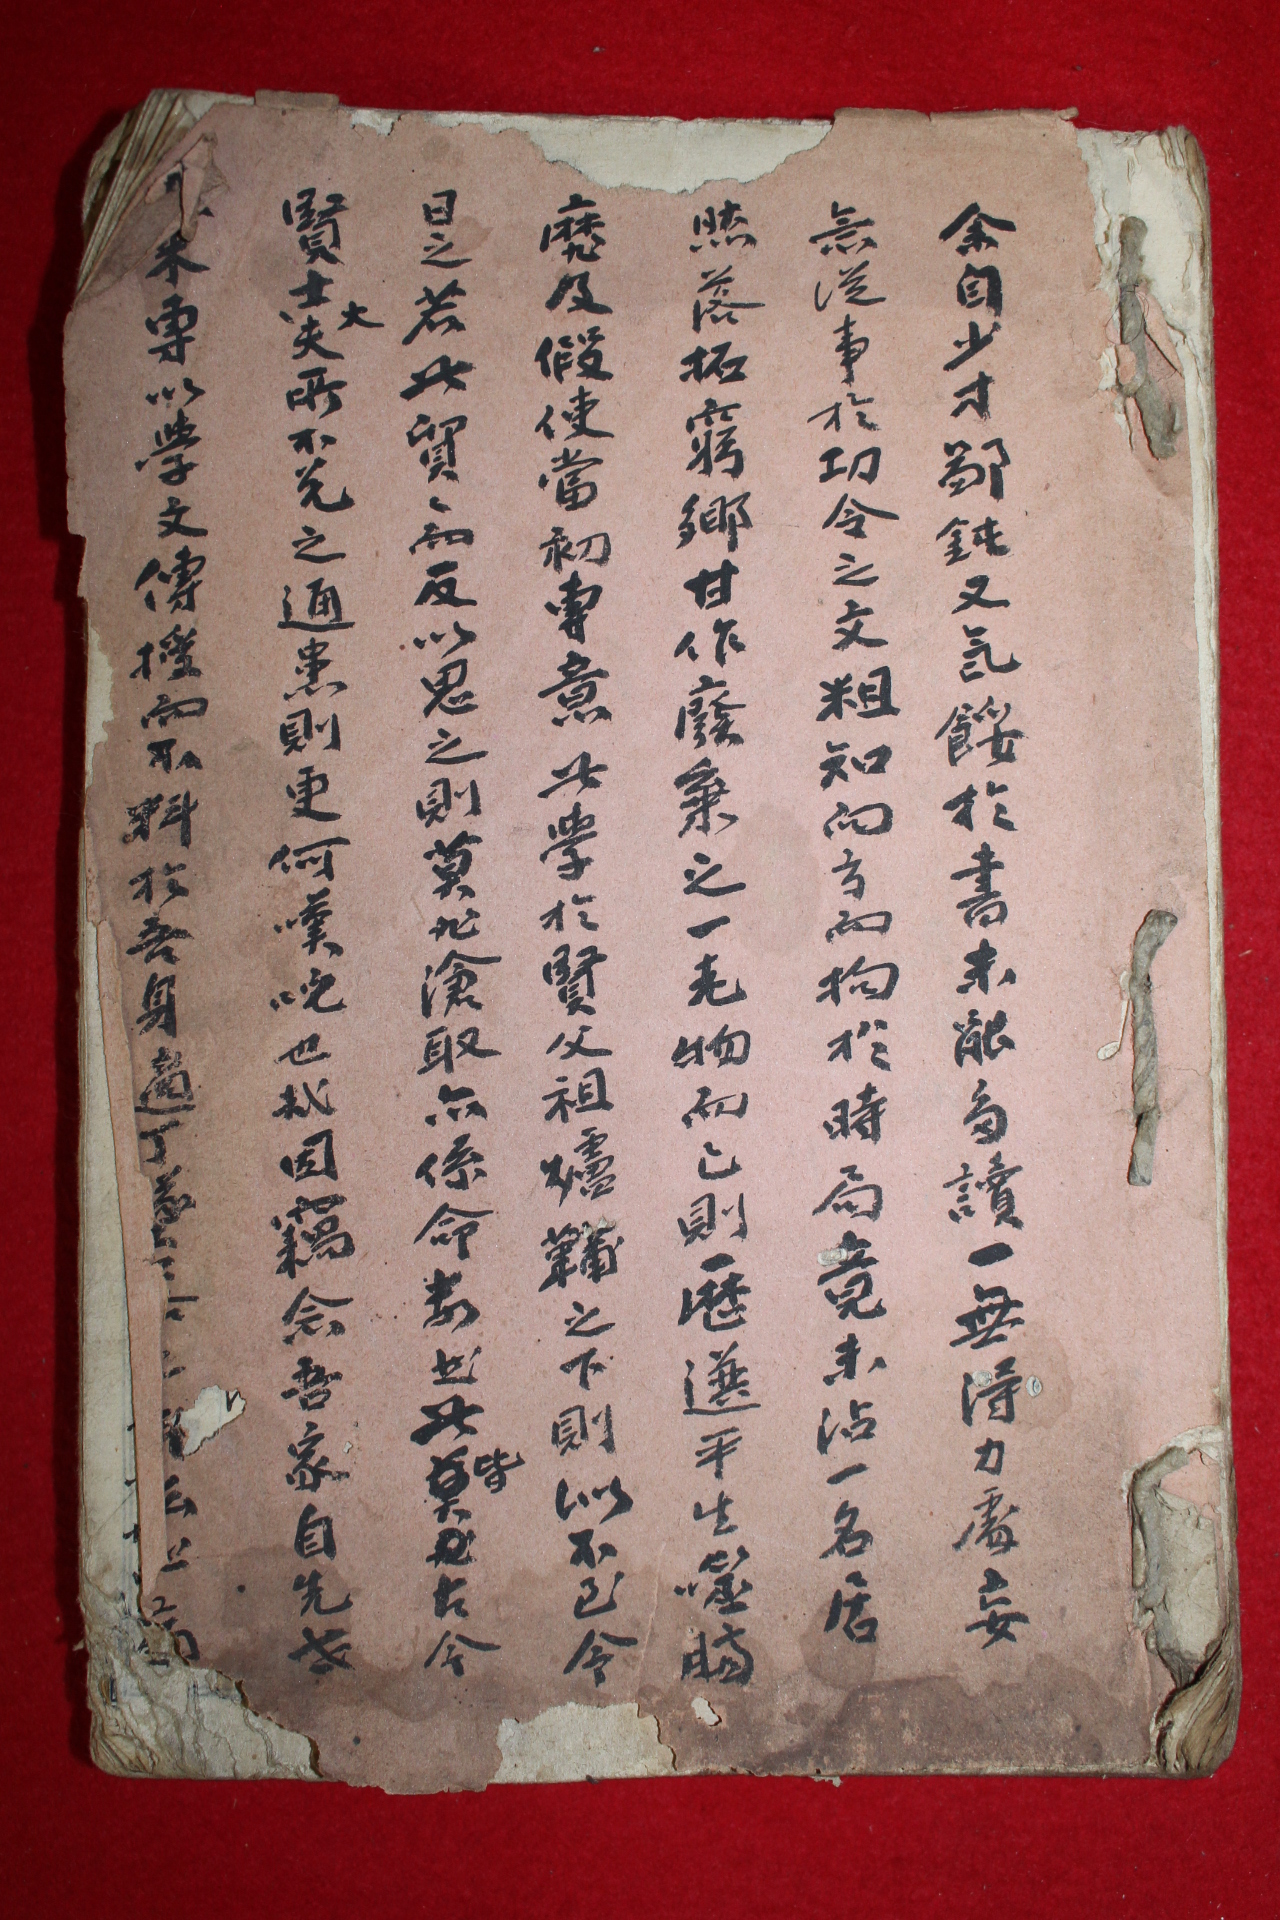 余自少才鄙鈍又氣餒於書未能多讀一無得力處妄
無從事於功令之文粗知向方而拘於時局竟未沾一名居
然落拓窮鄉甘作廢棄之一老物而已則歷選平生噬臍
靡及假使當初專意此學於賢父祖爐韛之下則似不至今
日之若此貿貿而反以思之則莫非滄取亦係命數也此皆莫非古今
賢士大夫所不免之通患則更何嘆咜也哉因竊念吾家自先世
來專以學文傳授而不料於吾身適丁